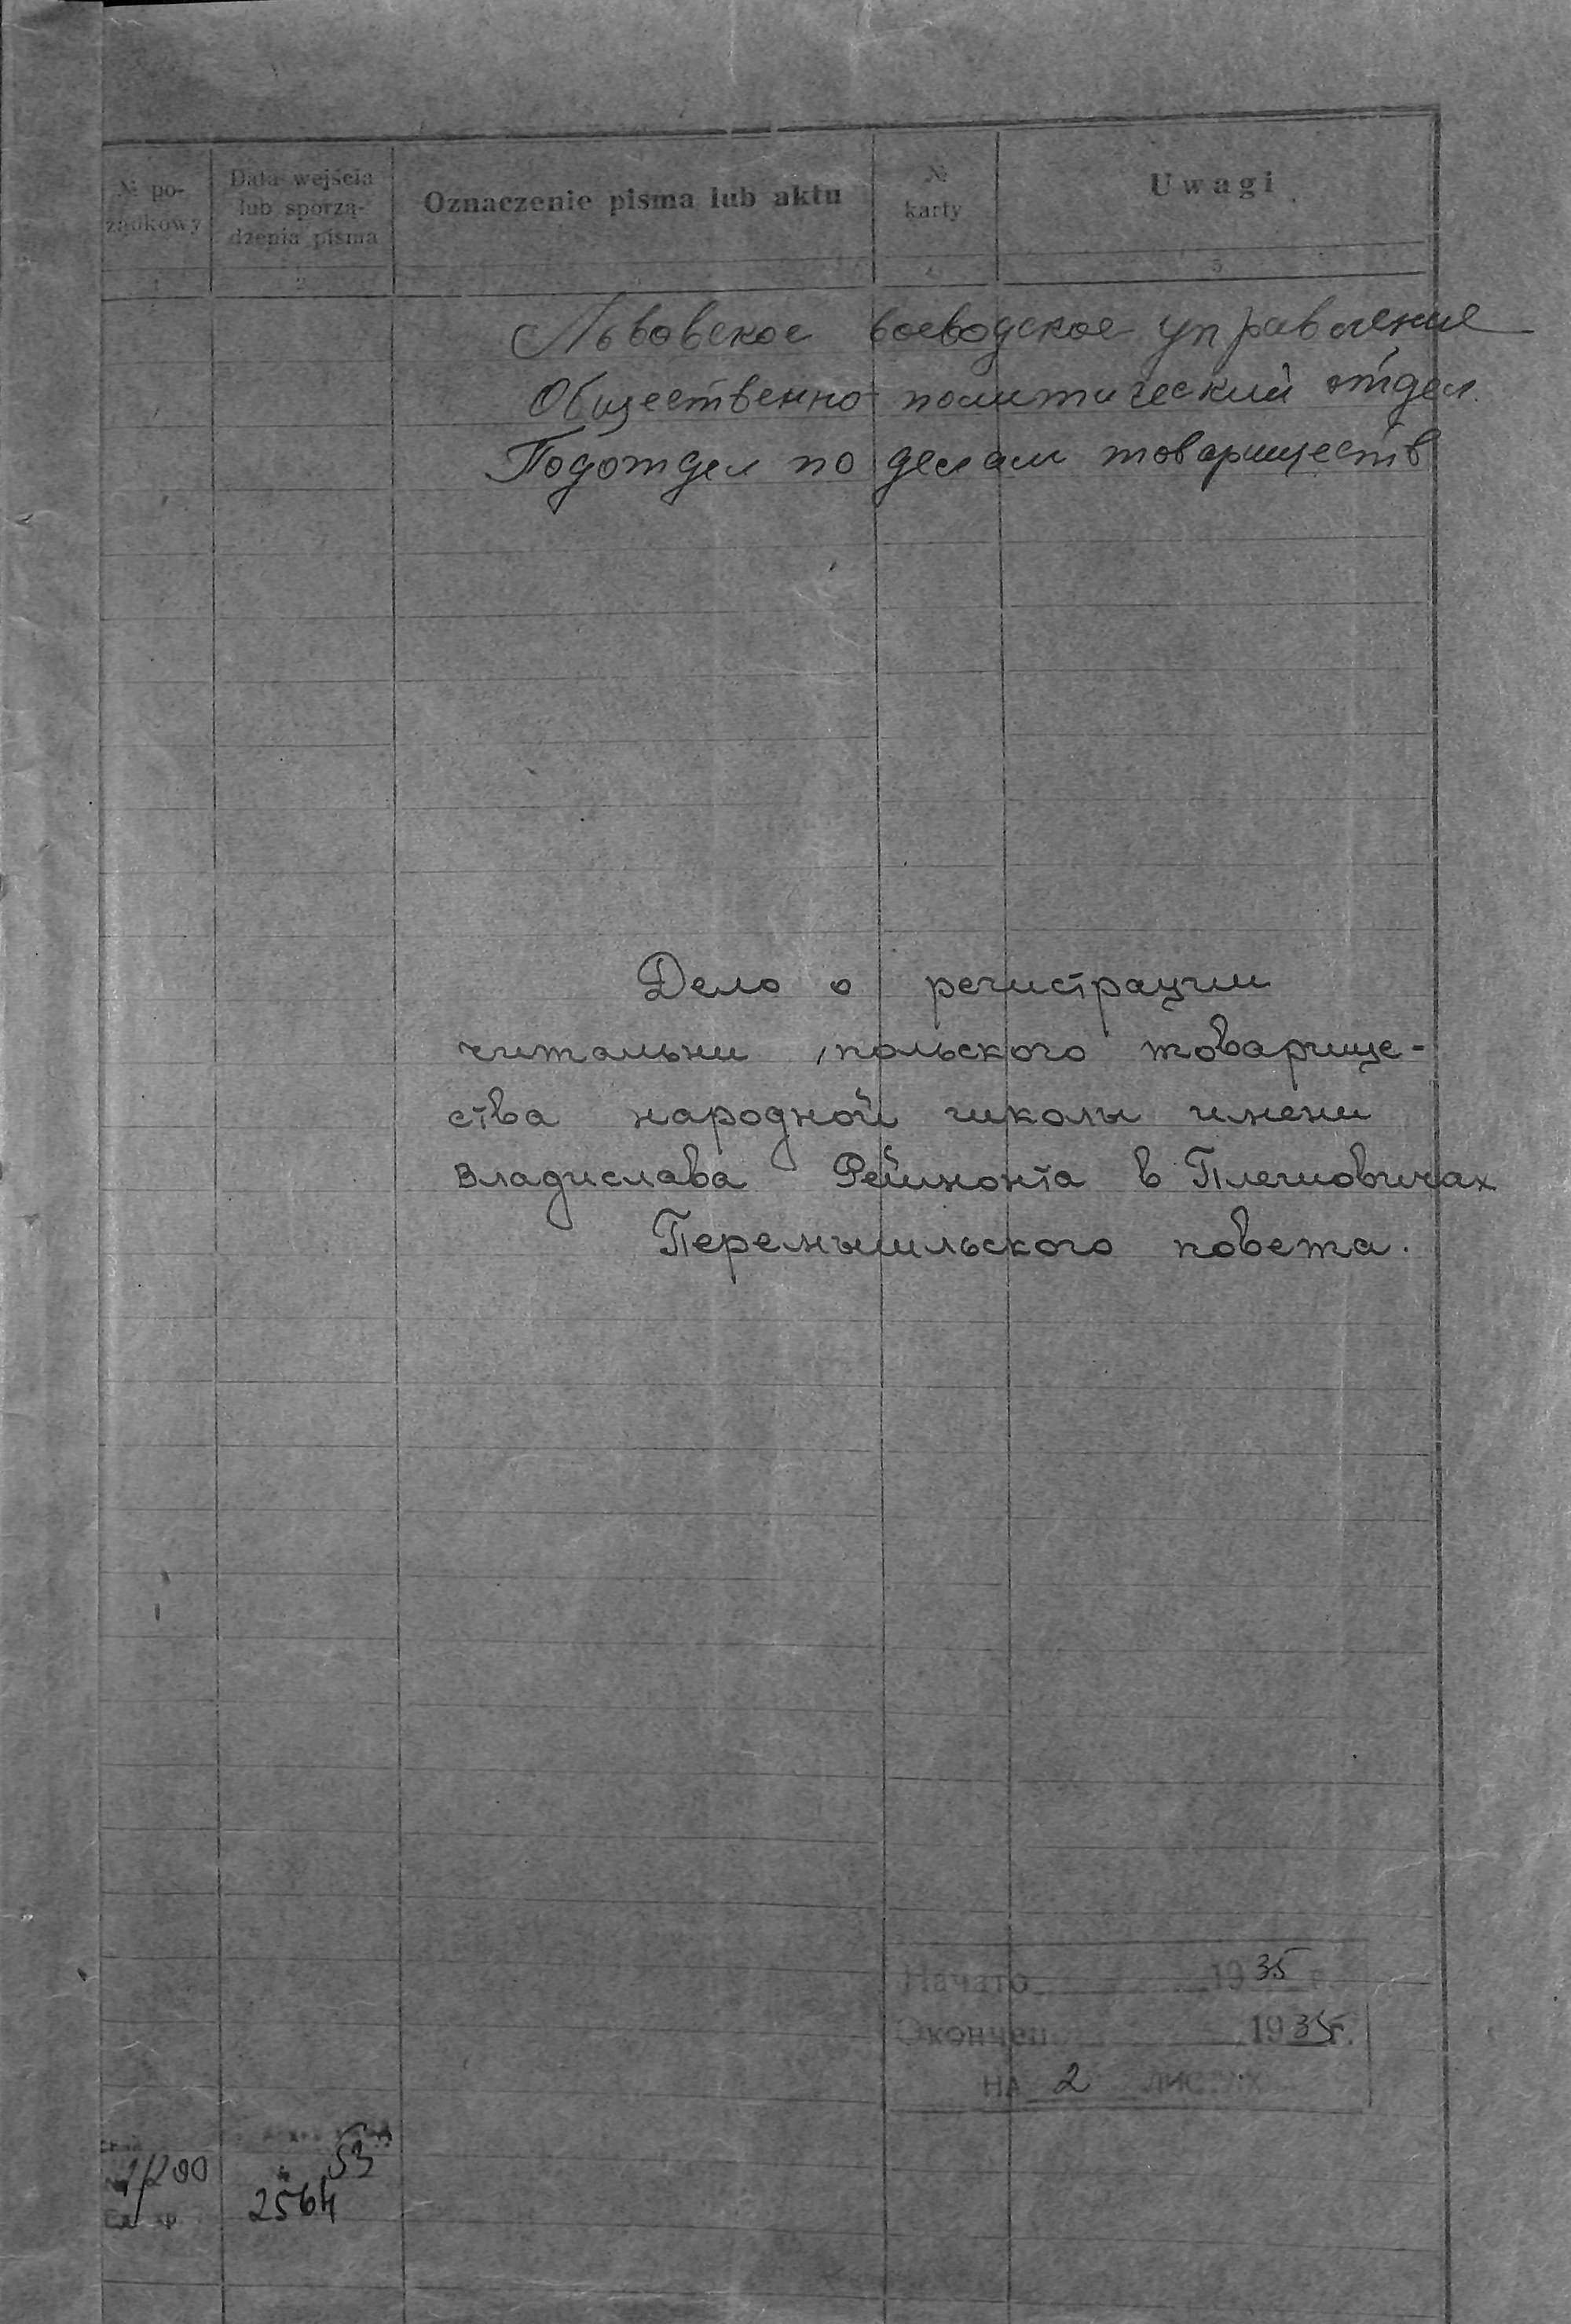 № po-
ządkowy
Data wejścia
lub sporzą-
dzenia pisma
Oznaczenie pisma lub aktu
№
karty
Uwagi
1
2
4
5
Львовское воеводское управление
Общественно-политический отдел.
Подотдел по делам товариществ
Дело о регистрации
читальни польского товарище-
ства народной школы имени
Владислава Реймонта в Плешовичах
Перемышльского повета.
Начато 1935 г.
Окончен 1935г.
НА 2 ЛИСТАХ
1/200
53
2564
Ед. хр.